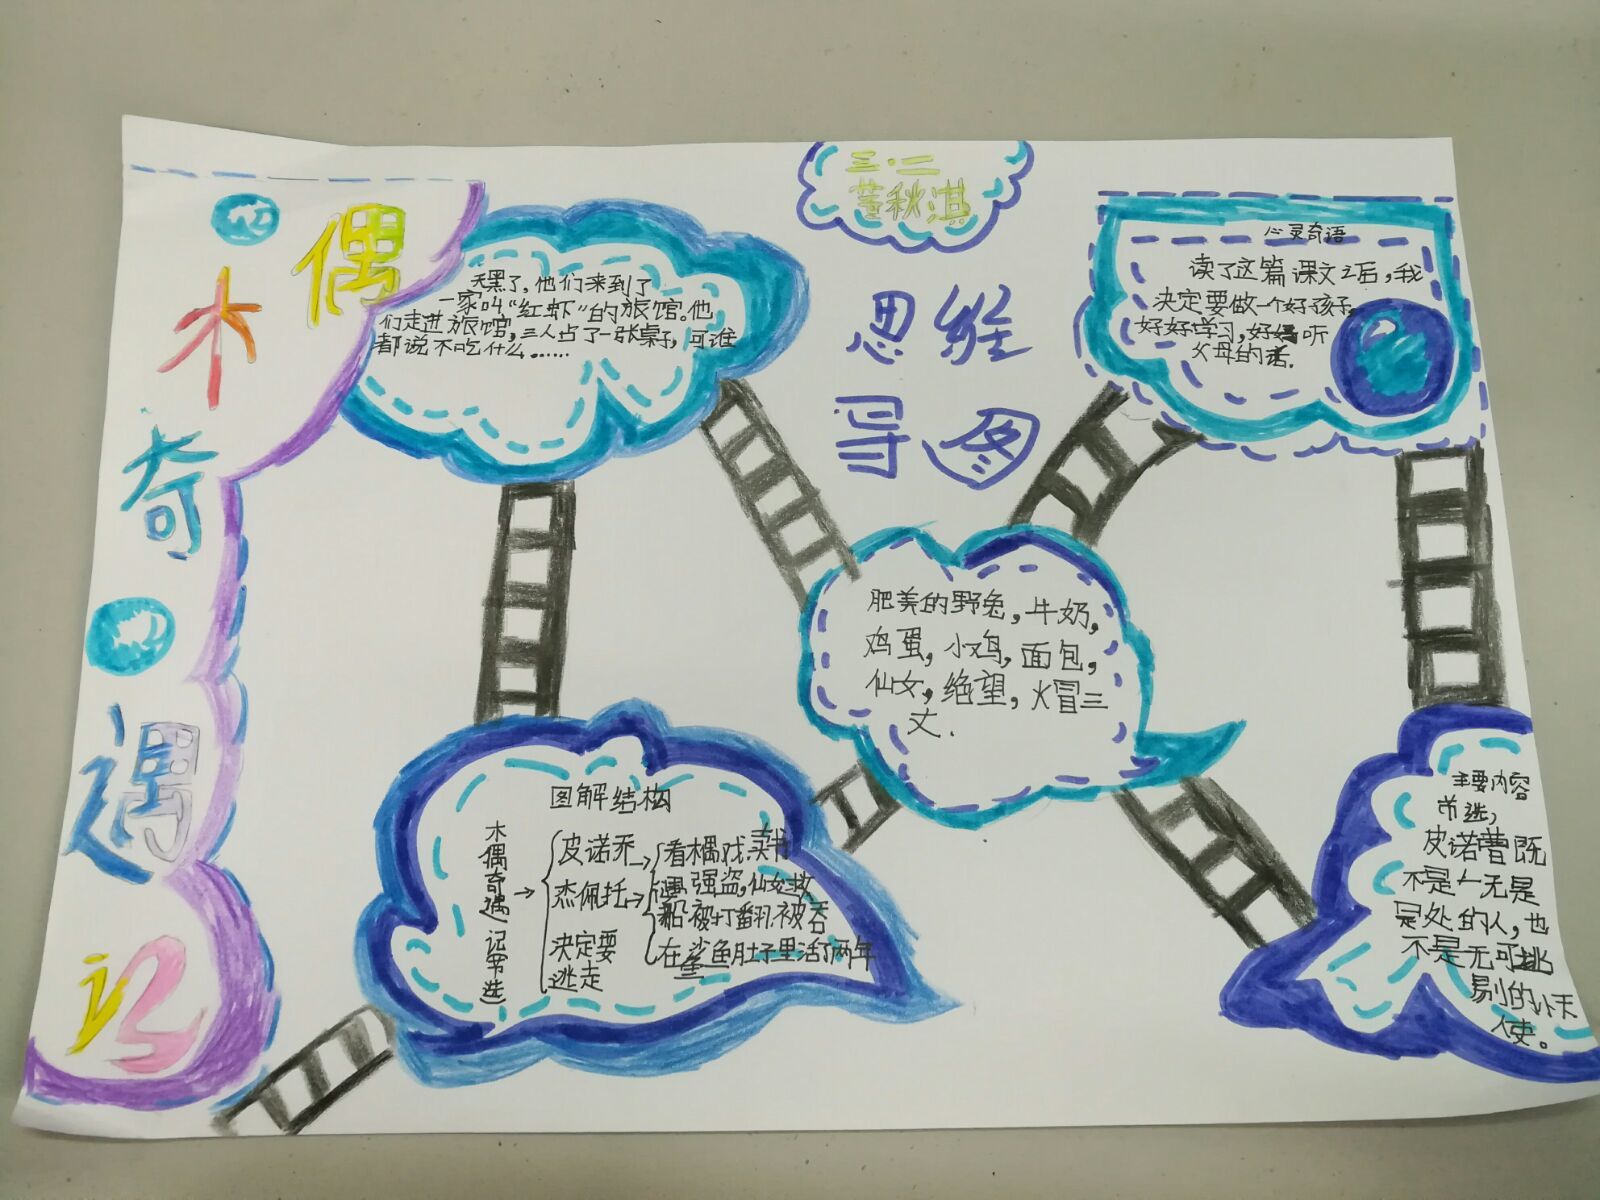 木偶奇遇记
三·二
董秋淇
思维
导图
天黑了,他们来到了
一家叫“红虾”的旅馆。他
们走进旅馆,三人占了一张桌子,可谁
都说不吃什么,……
心灵奇语
读了这篇课文之后,我
决定要做一个好孩子,
好好学习,好好听
父母的话.
肥美的野兔,牛奶,
鸡蛋,小鸡,面包,
仙女,绝望,火冒三
丈.
图解结构
木偶奇遇记(节选)→
皮诺乔→
杰佩托→
决定要
逃走
看木偶戏,卖书
遇强盗,仙女救
船被打翻,被吞
在鲨鱼肚子里活了两年
主要内容
节选,
皮诺曹既
不是一无是
是处的人,也
不是无可挑
剔的小天
使。